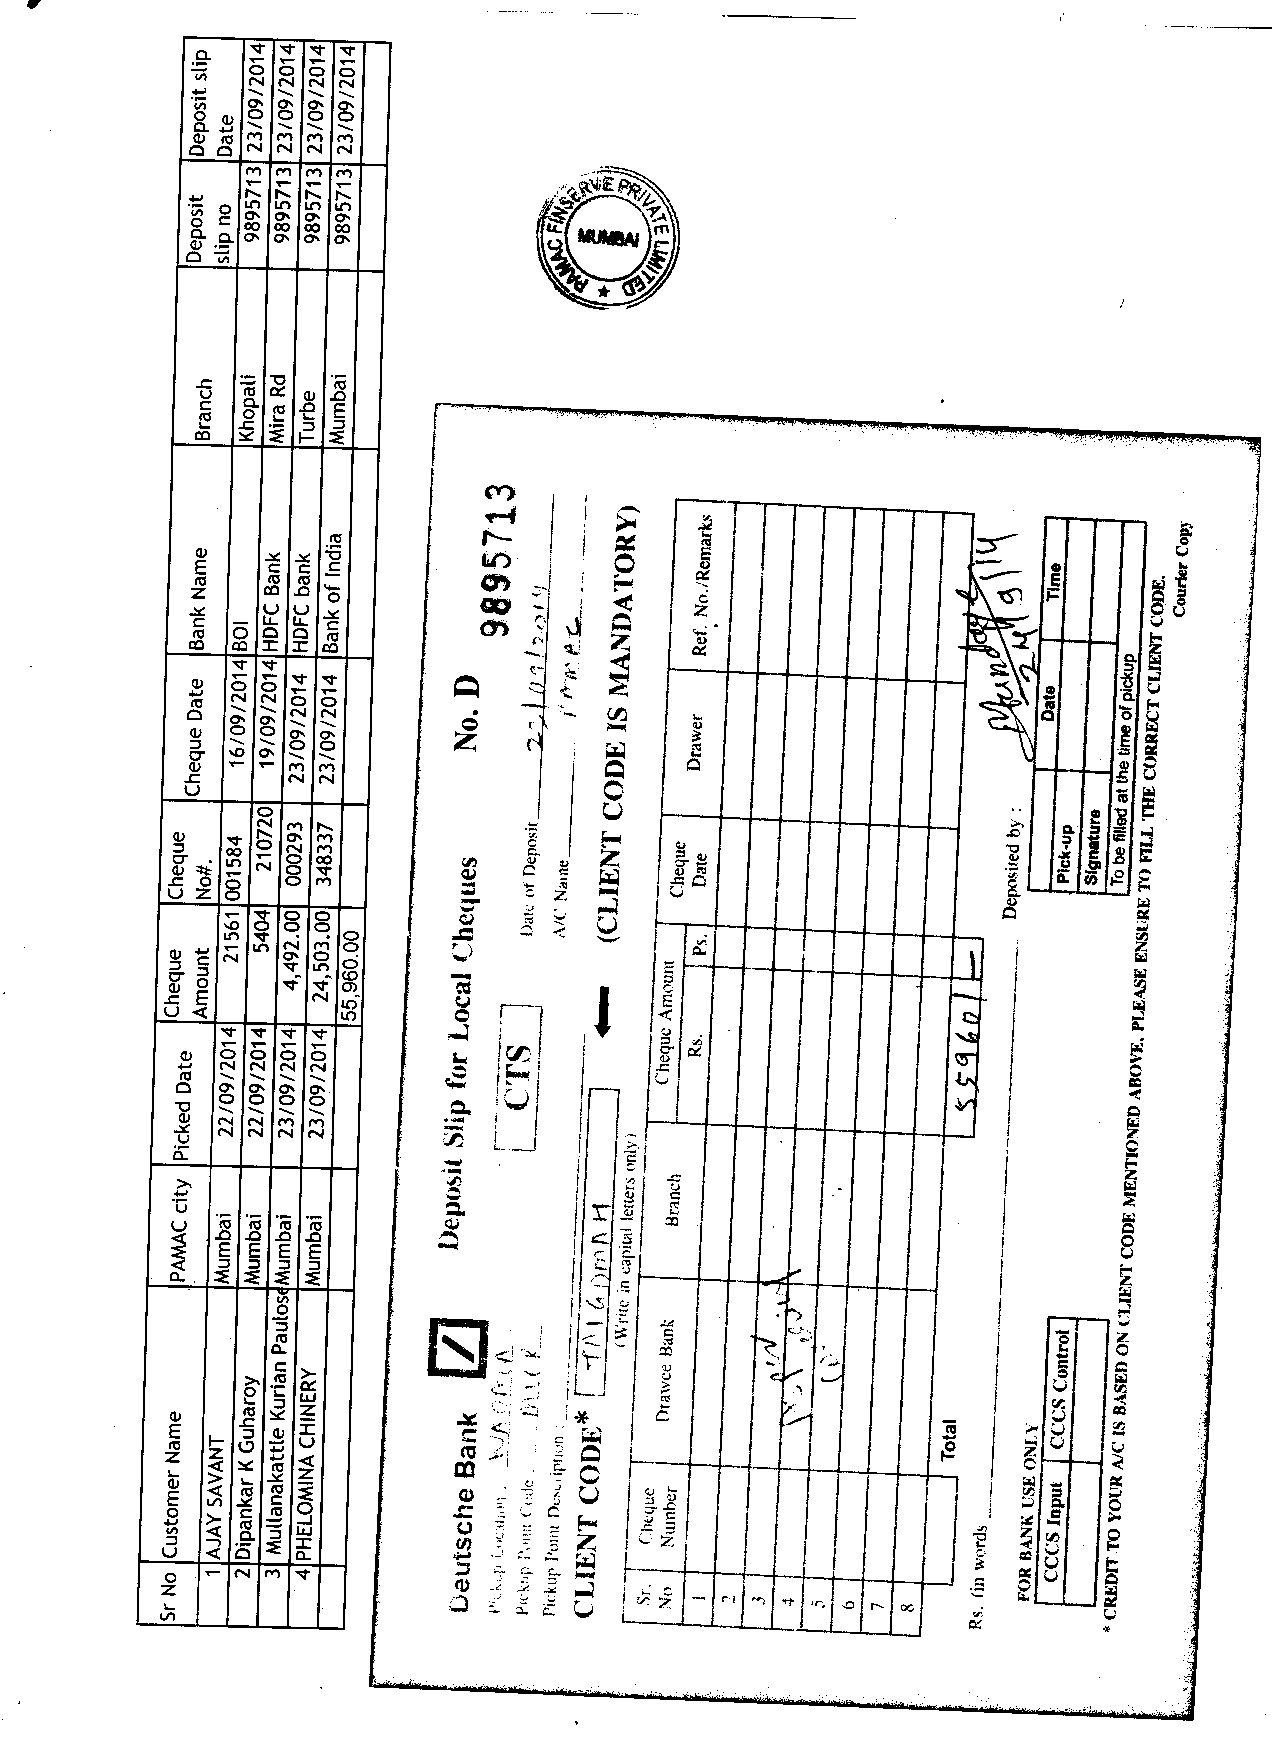 Sr No Customer Name PAMAC city Picked Date Cheque Amount Cheque No#. Cheque Date Bank Name Branch Deposit slip no Deposit slip Date
1 AJAY SAVANT Mumbai 22/09/2014 21561 001584 16/09/2014 BOI Khopali 9895713 23/09/2014
2 Dipankar K Guharoy Mumbai 22/09/2014 5404 210720 19/09/2014 HDFC Bank Mira Rd 9895713 23/09/2014
3 Mullanakattle Kurian Paulose Mumbai 23/09/2014 4,492.00 000293 23/09/2014 HDFC bank Turbe 9895713 23/09/2014
4 PHELOMINA CHINERY Mumbai 23/09/2014 24,503.00 348337 23/09/2014 Bank of India Mumbai 9895713 23/09/2014
55,960.00
PAMAC FINSERVE PRIVATE LIMITED
MUMBAI
Deutsche Bank Deposit Slip for Local Cheques No. D 9895713
Pickup Location
CTS
Date of Deposit 23/09/2014
Pickup Point Code
A/C Name PAMAC
Pickup Point Description
CLIENT CODE* (CLIENT CODE IS MANDATORY)
(Write in capital letters only)
Sr. No Cheque Number Drawee Bank Branch Cheque Amount Rs. Ps. Cheque Date Drawer Ref. No./Remarks
1
2
3
4
5
6
7
8
Total 55960/-
Rs. (in words Deposited by :
24/9/14
FOR BANK USE ONLY
CCCS Input CCCS Control
Date Time
Pick-up
Signature
To be filled at the time of pickup
* CREDIT TO YOUR A/C IS BASED ON CLIENT CODE MENTIONED ABOVE, PLEASE ENSURE TO FILL THE CORRECT CLIENT CODE.
Courier Copy